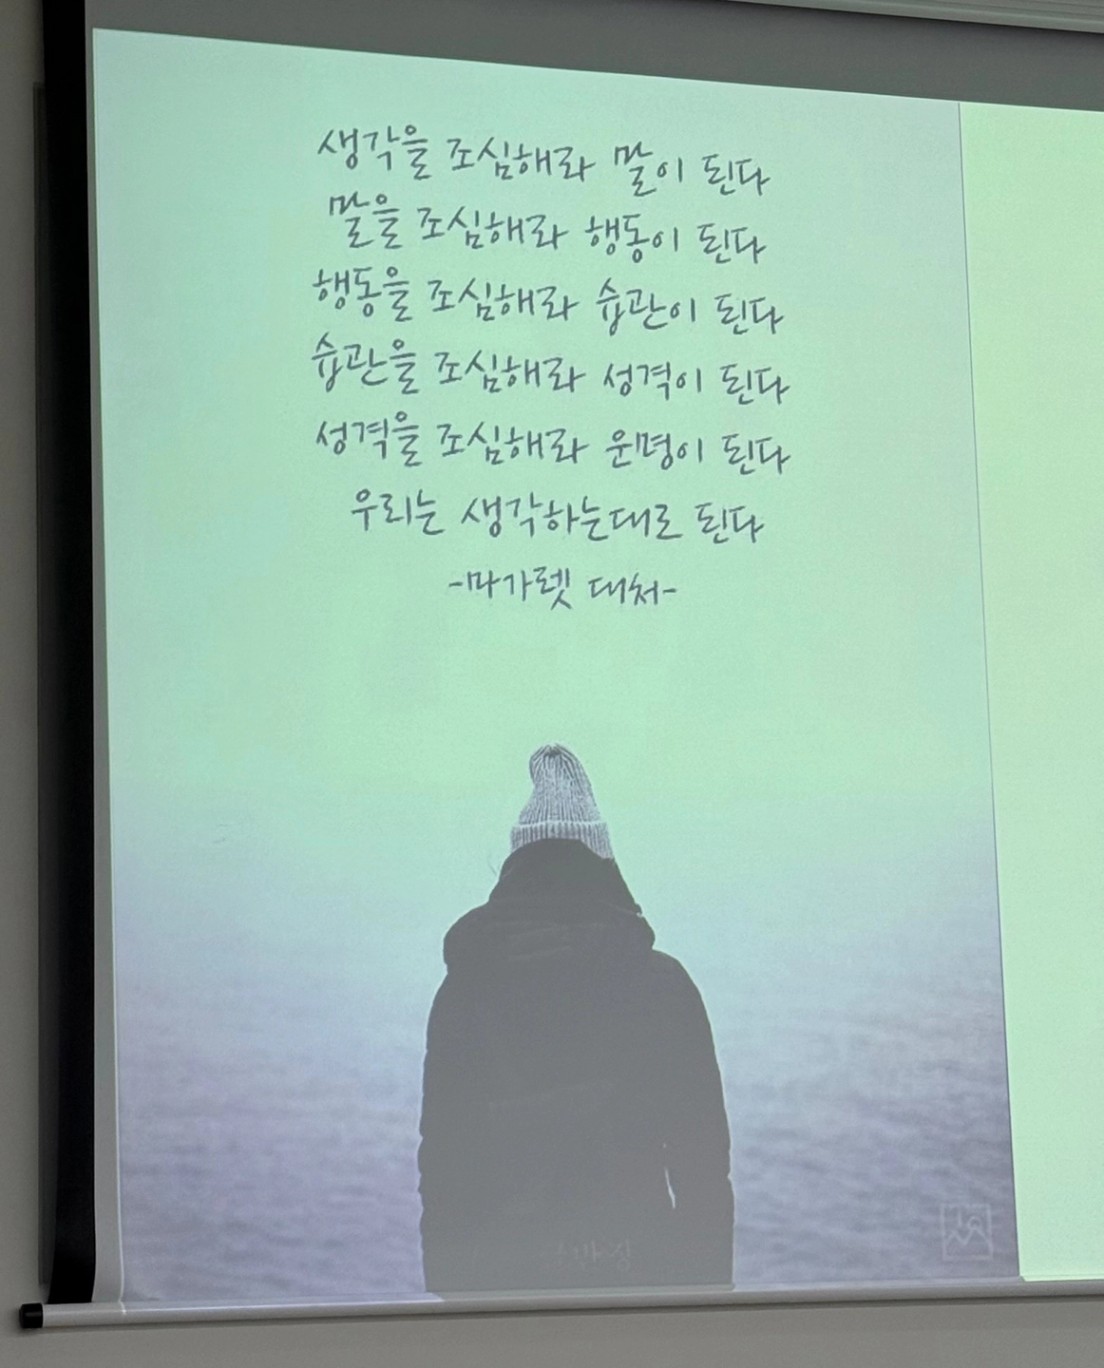 생각을 조심해라 말이 된다
말을 조심해라 행동이 된다
행동을 조심해라 습관이 된다
습관을 조심해라 성격이 된다
성격을 조심해라 운명이 된다
우리는 생각하는대로 된다
-마가렛 대처-